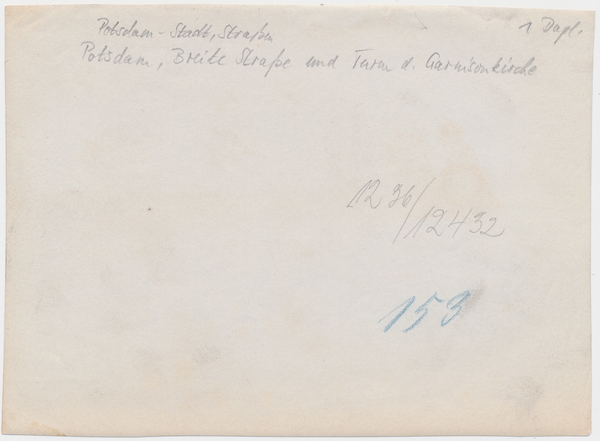 Potsdam-Stadt, Straßen
1 Dupl.
Potsdam, Breite Straße und Turm d. Garnisonkirche
1236/12432
153